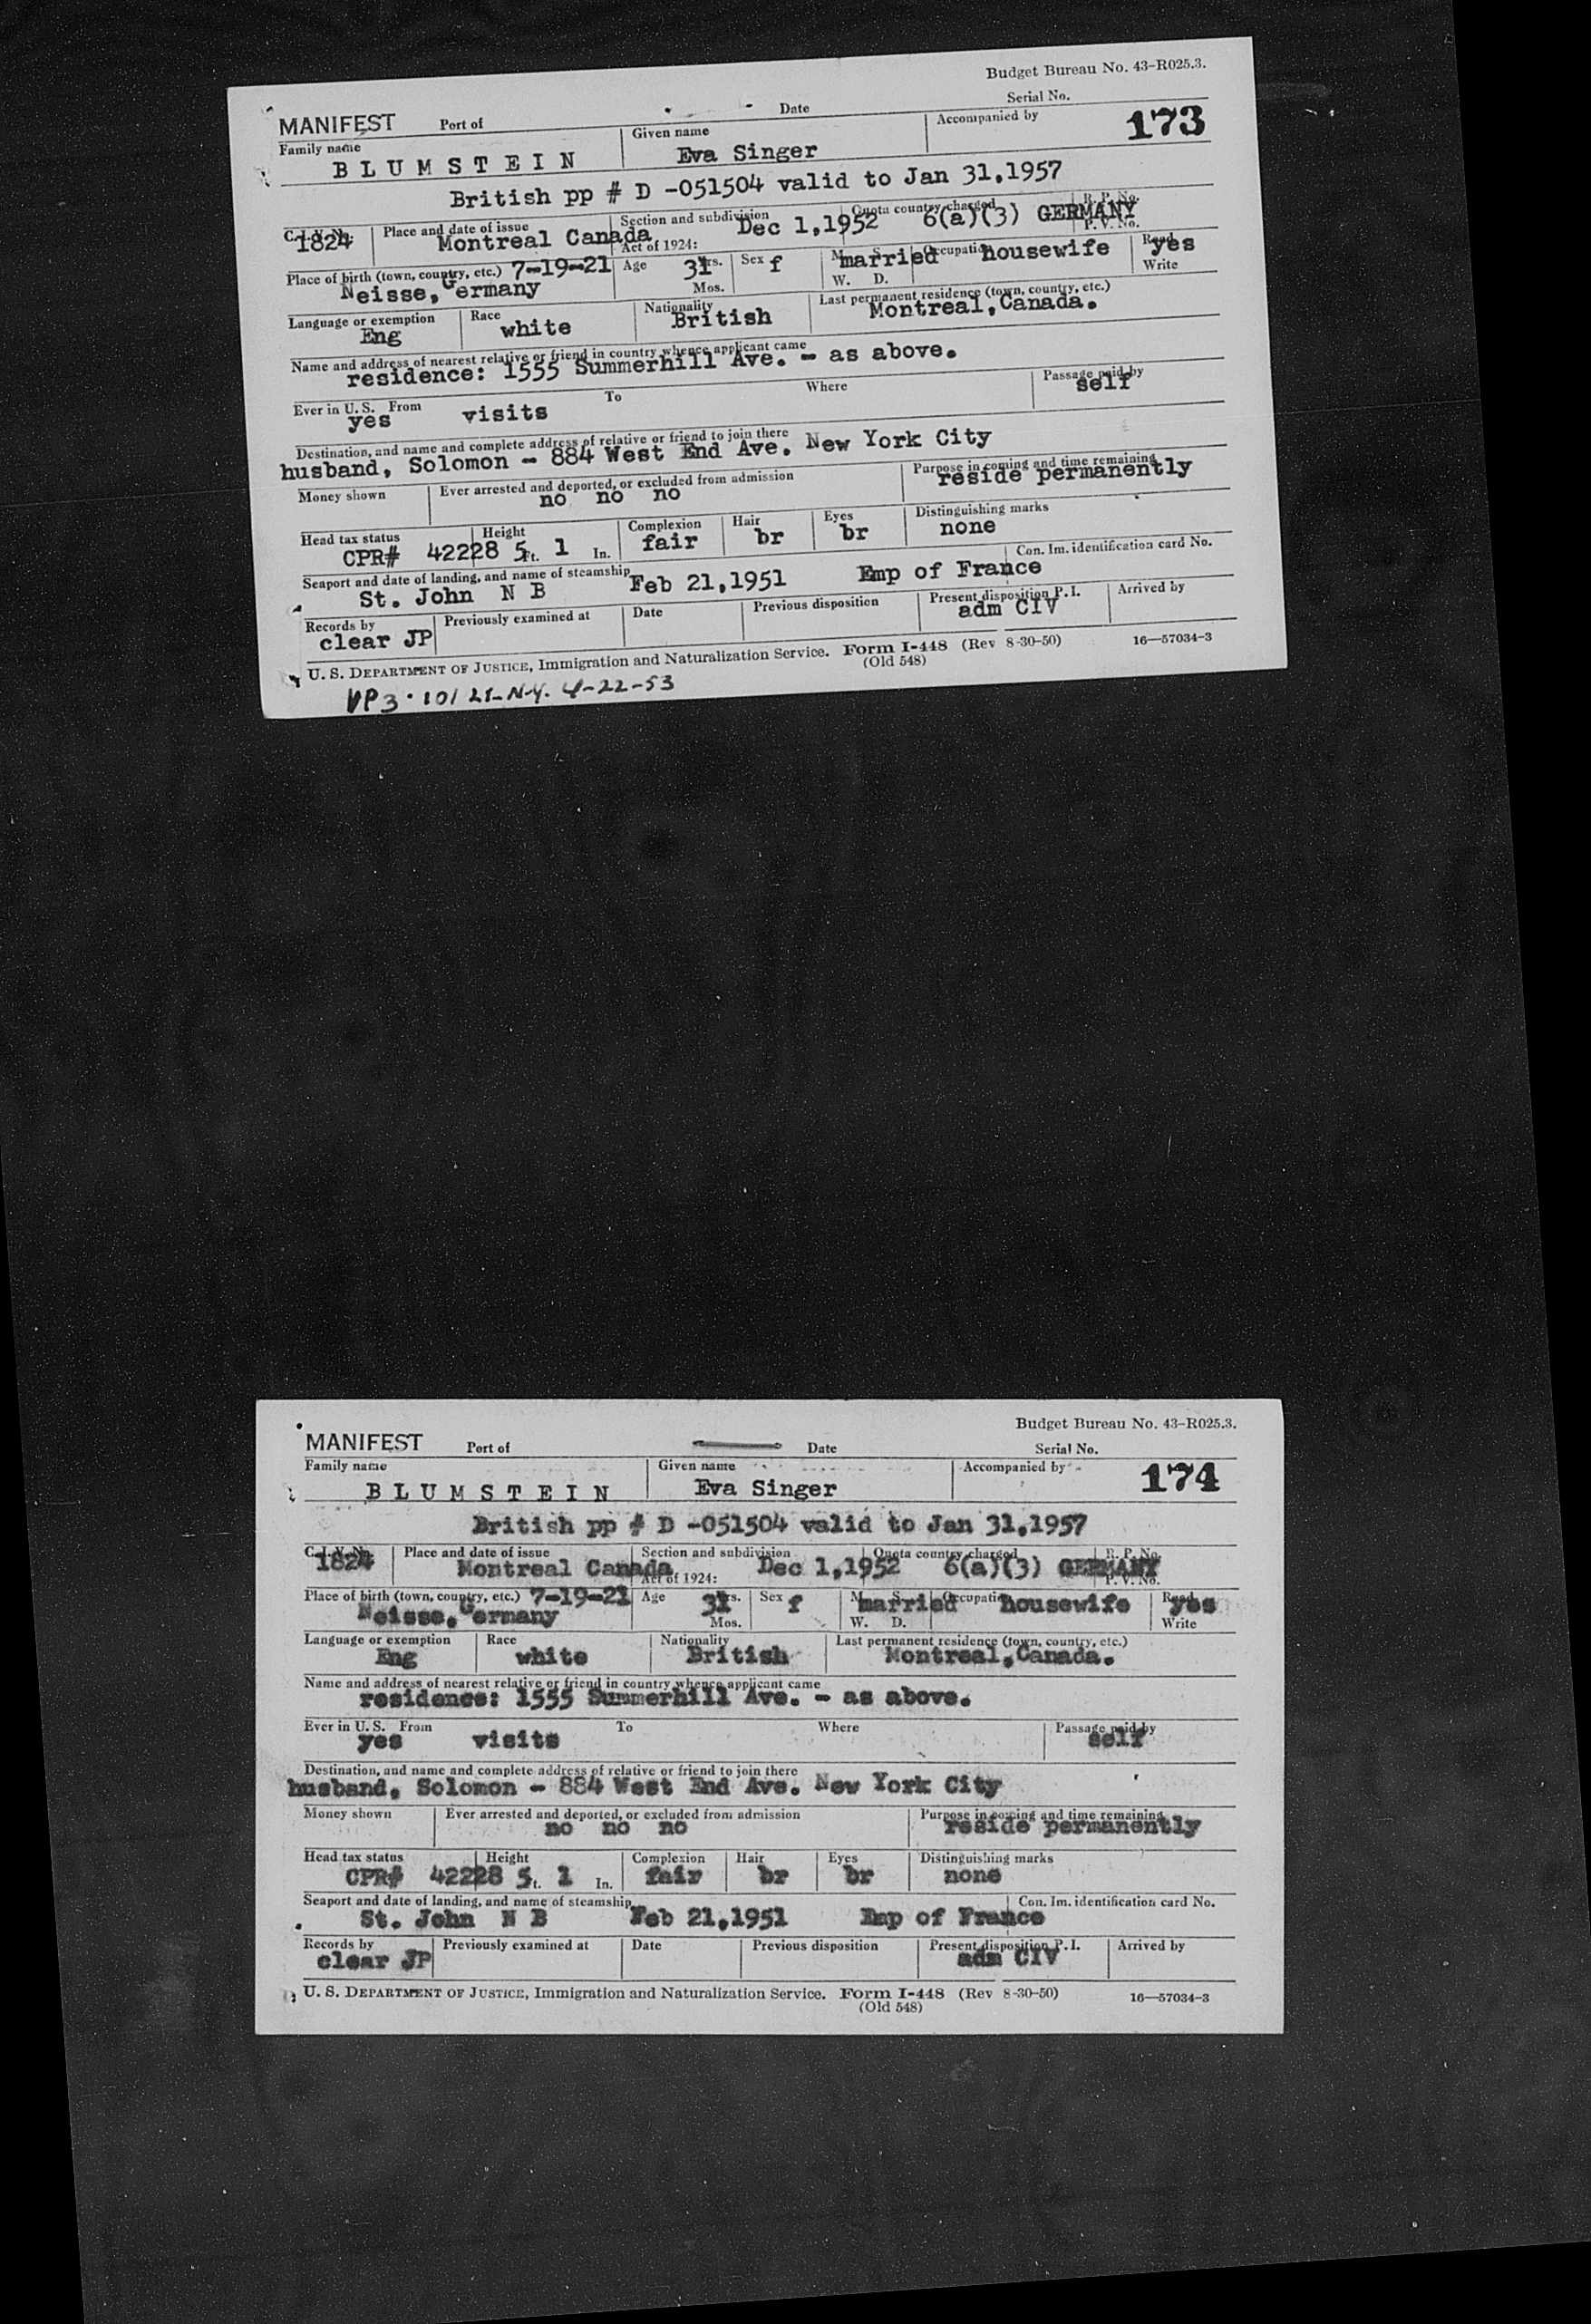 Budget Bureau No. 43-R025.3.
MANIFEST Port of Date Serial No.
Family name Given name Accompanied by 173
BLUMSTEIN Eva Singer
British pp # D -051504 valid to Jan 31,1957
C.I.V. No. Place and date of issue Section and subdivision Quota country charged R. P. No.
1824 Montreal Canada Dec 1,1952 6(a)(3) GERMANY
Act of 1924: P. V. No.
Place of birth (town, country, etc.) 7-19-21 Age 31 Yrs. Sex f M. S. married Occupation housewife Read yes
Neisse, Germany Mos. W. D. Write
Language or exemption Race Nationality Last permanent residence (town, country, etc.)
Eng white British Montreal,Canada.
Name and address of nearest relative or friend in country whence applicant came
residence: 1555 Summerhill Ave. - as above.
Ever in U. S. From To Where Passage paid by
yes visits self
Destination, and name and complete address of relative or friend to join there
husband, Solomon - 884 West End Ave. New York City
Money shown Ever arrested and deported, or excluded from admission Purpose in coming and time remaining
no no no reside permanently
Head tax status Height Complexion Hair Eyes Distinguishing marks
CPR# 42228 5 Ft. 1 In. fair br br none
Seaport and date of landing, and name of steamship Con. Im. identification card No.
St. John N B Feb 21,1951 Emp of France
Records by Previously examined at Date Previous disposition Present disposition P. I. Arrived by
clear JP adm CIV
U. S. DEPARTMENT OF JUSTICE, Immigration and Naturalization Service. Form I-448 (Rev 8-30-50) 16—57034-3
(Old 548)
4-22-53
Budget Bureau No. 43-R025.3.
MANIFEST Port of Date Serial No.
Family name Given name Accompanied by 174
BLUMSTEIN Eva Singer
British pp # D -051504 valid to Jan 31,1957
C.I.V. No. Place and date of issue Section and subdivision Quota country charged R. P. No.
1824 Montreal Canada Dec 1,1952 6(a)(3) GERMANY
Act of 1924: P. V. No.
Place of birth (town, country, etc.) 7-19-21 Age 31 Yrs. Sex f M. S. married Occupation housewife Read yes
Neisse, Germany Mos. W. D. Write
Language or exemption Race Nationality Last permanent residence (town, country, etc.)
Eng white British Montreal,Canada.
Name and address of nearest relative or friend in country whence applicant came
residence: 1555 Summerhill Ave. - as above.
Ever in U. S. From To Where Passage paid by
yes visits self
Destination, and name and complete address of relative or friend to join there
husband, Solomon - 884 West End Ave. New York City
Money shown Ever arrested and deported, or excluded from admission Purpose in coming and time remaining
no no no reside permanently
Head tax status Height Complexion Hair Eyes Distinguishing marks
CPR# 42228 5 Ft. 1 In. fair br br none
Seaport and date of landing, and name of steamship Con. Im. identification card No.
St. John N B Feb 21,1951 Emp of France
Records by Previously examined at Date Previous disposition Present disposition P. I. Arrived by
clear JP adm CIV
U. S. DEPARTMENT OF JUSTICE, Immigration and Naturalization Service. Form I-448 (Rev 8-30-50) 16—57034-3
(Old 548)